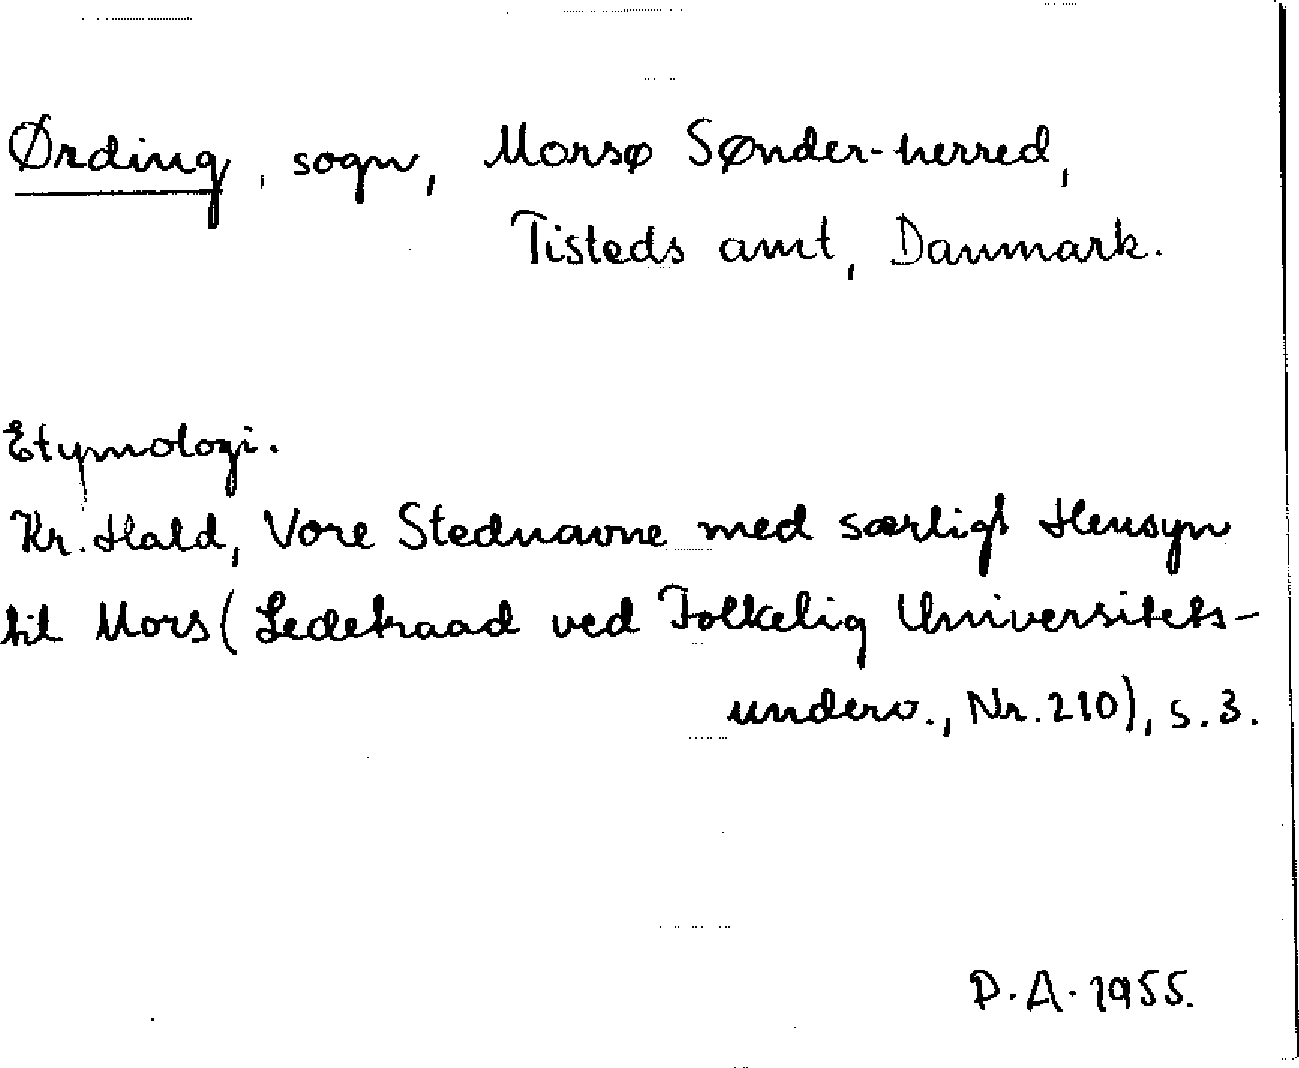 Ørding, sogn, Morsø Sønder-herred,
Tisteds amt, Danmark.
Etymologi.
Kr. Hald, Vore Stednavne med særligt Hensyn
til Mors (Ledetraad ved Folkelig Universitets-
underv., Nr. 210), s. 3.
D.A. 1955.